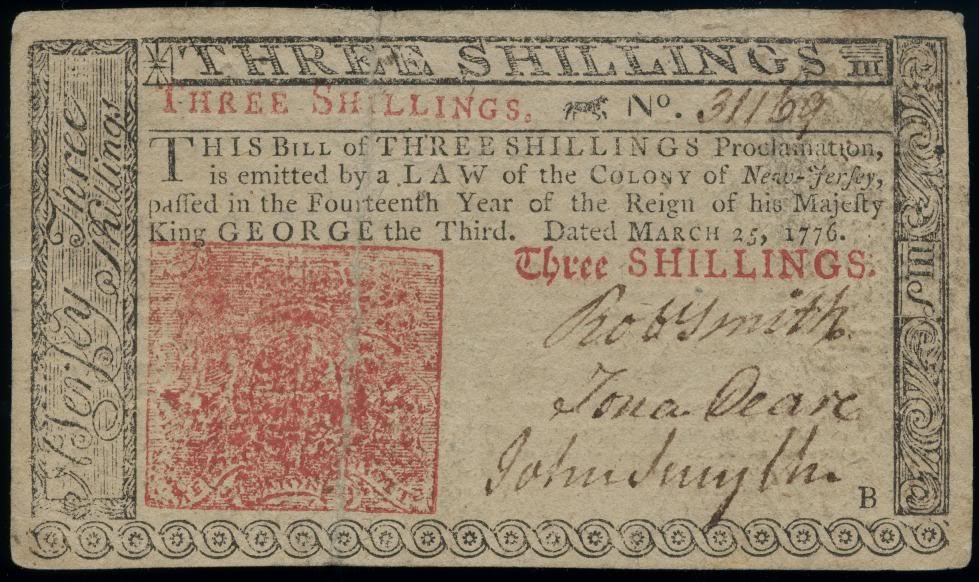 THREE SHILLINGS III
THREE SHILLINGS. No. 31169
THIS BILL of THREE SHILLINGS Proclamation,
is emitted by a LAW of the COLONY of New-Jerſey,
paſſed in the Fourteenth Year of the Reign of his Majeſty
King GEORGE the Third. Dated MARCH 25, 1776.
Three SHILLINGS.
Robt Smith
Jona Deare
John Smyth
B
N Jerſey Three
Shillings
IIIS